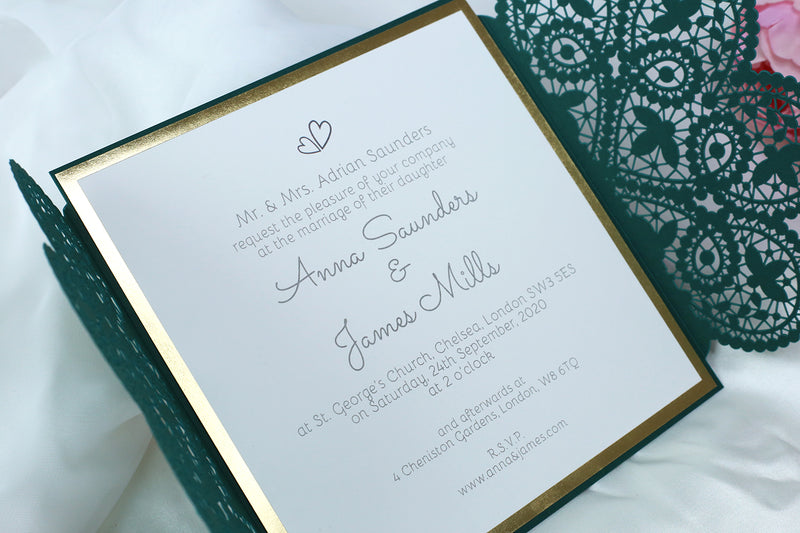 Mr. & Mrs. Adrian Saunders
request the pleasure of your company
at the marriage of their daughter
Anna Saunders
&
James Mills
at St. George's Church, Chelsea, London SW3 5ES
on Saturday, 24th September, 2020
at 2 o'clock
and afterwards at
4 Cheniston Gardens, London, W8 6TQ
R.S.V.P.
www.anna&james.com